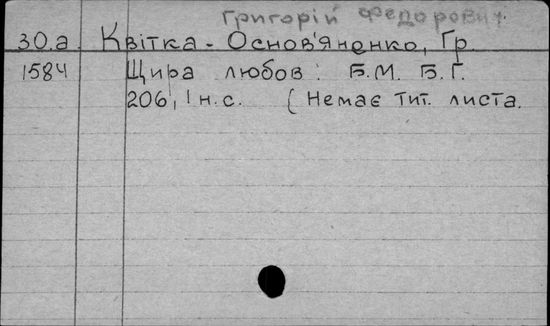 Григорій Федорович.
30.а. Квітка - Основ'яненко, Гр.
1584 Щира любов: Б.М. Б.Г.
206, 1 н.с. (Немає тит. листа.